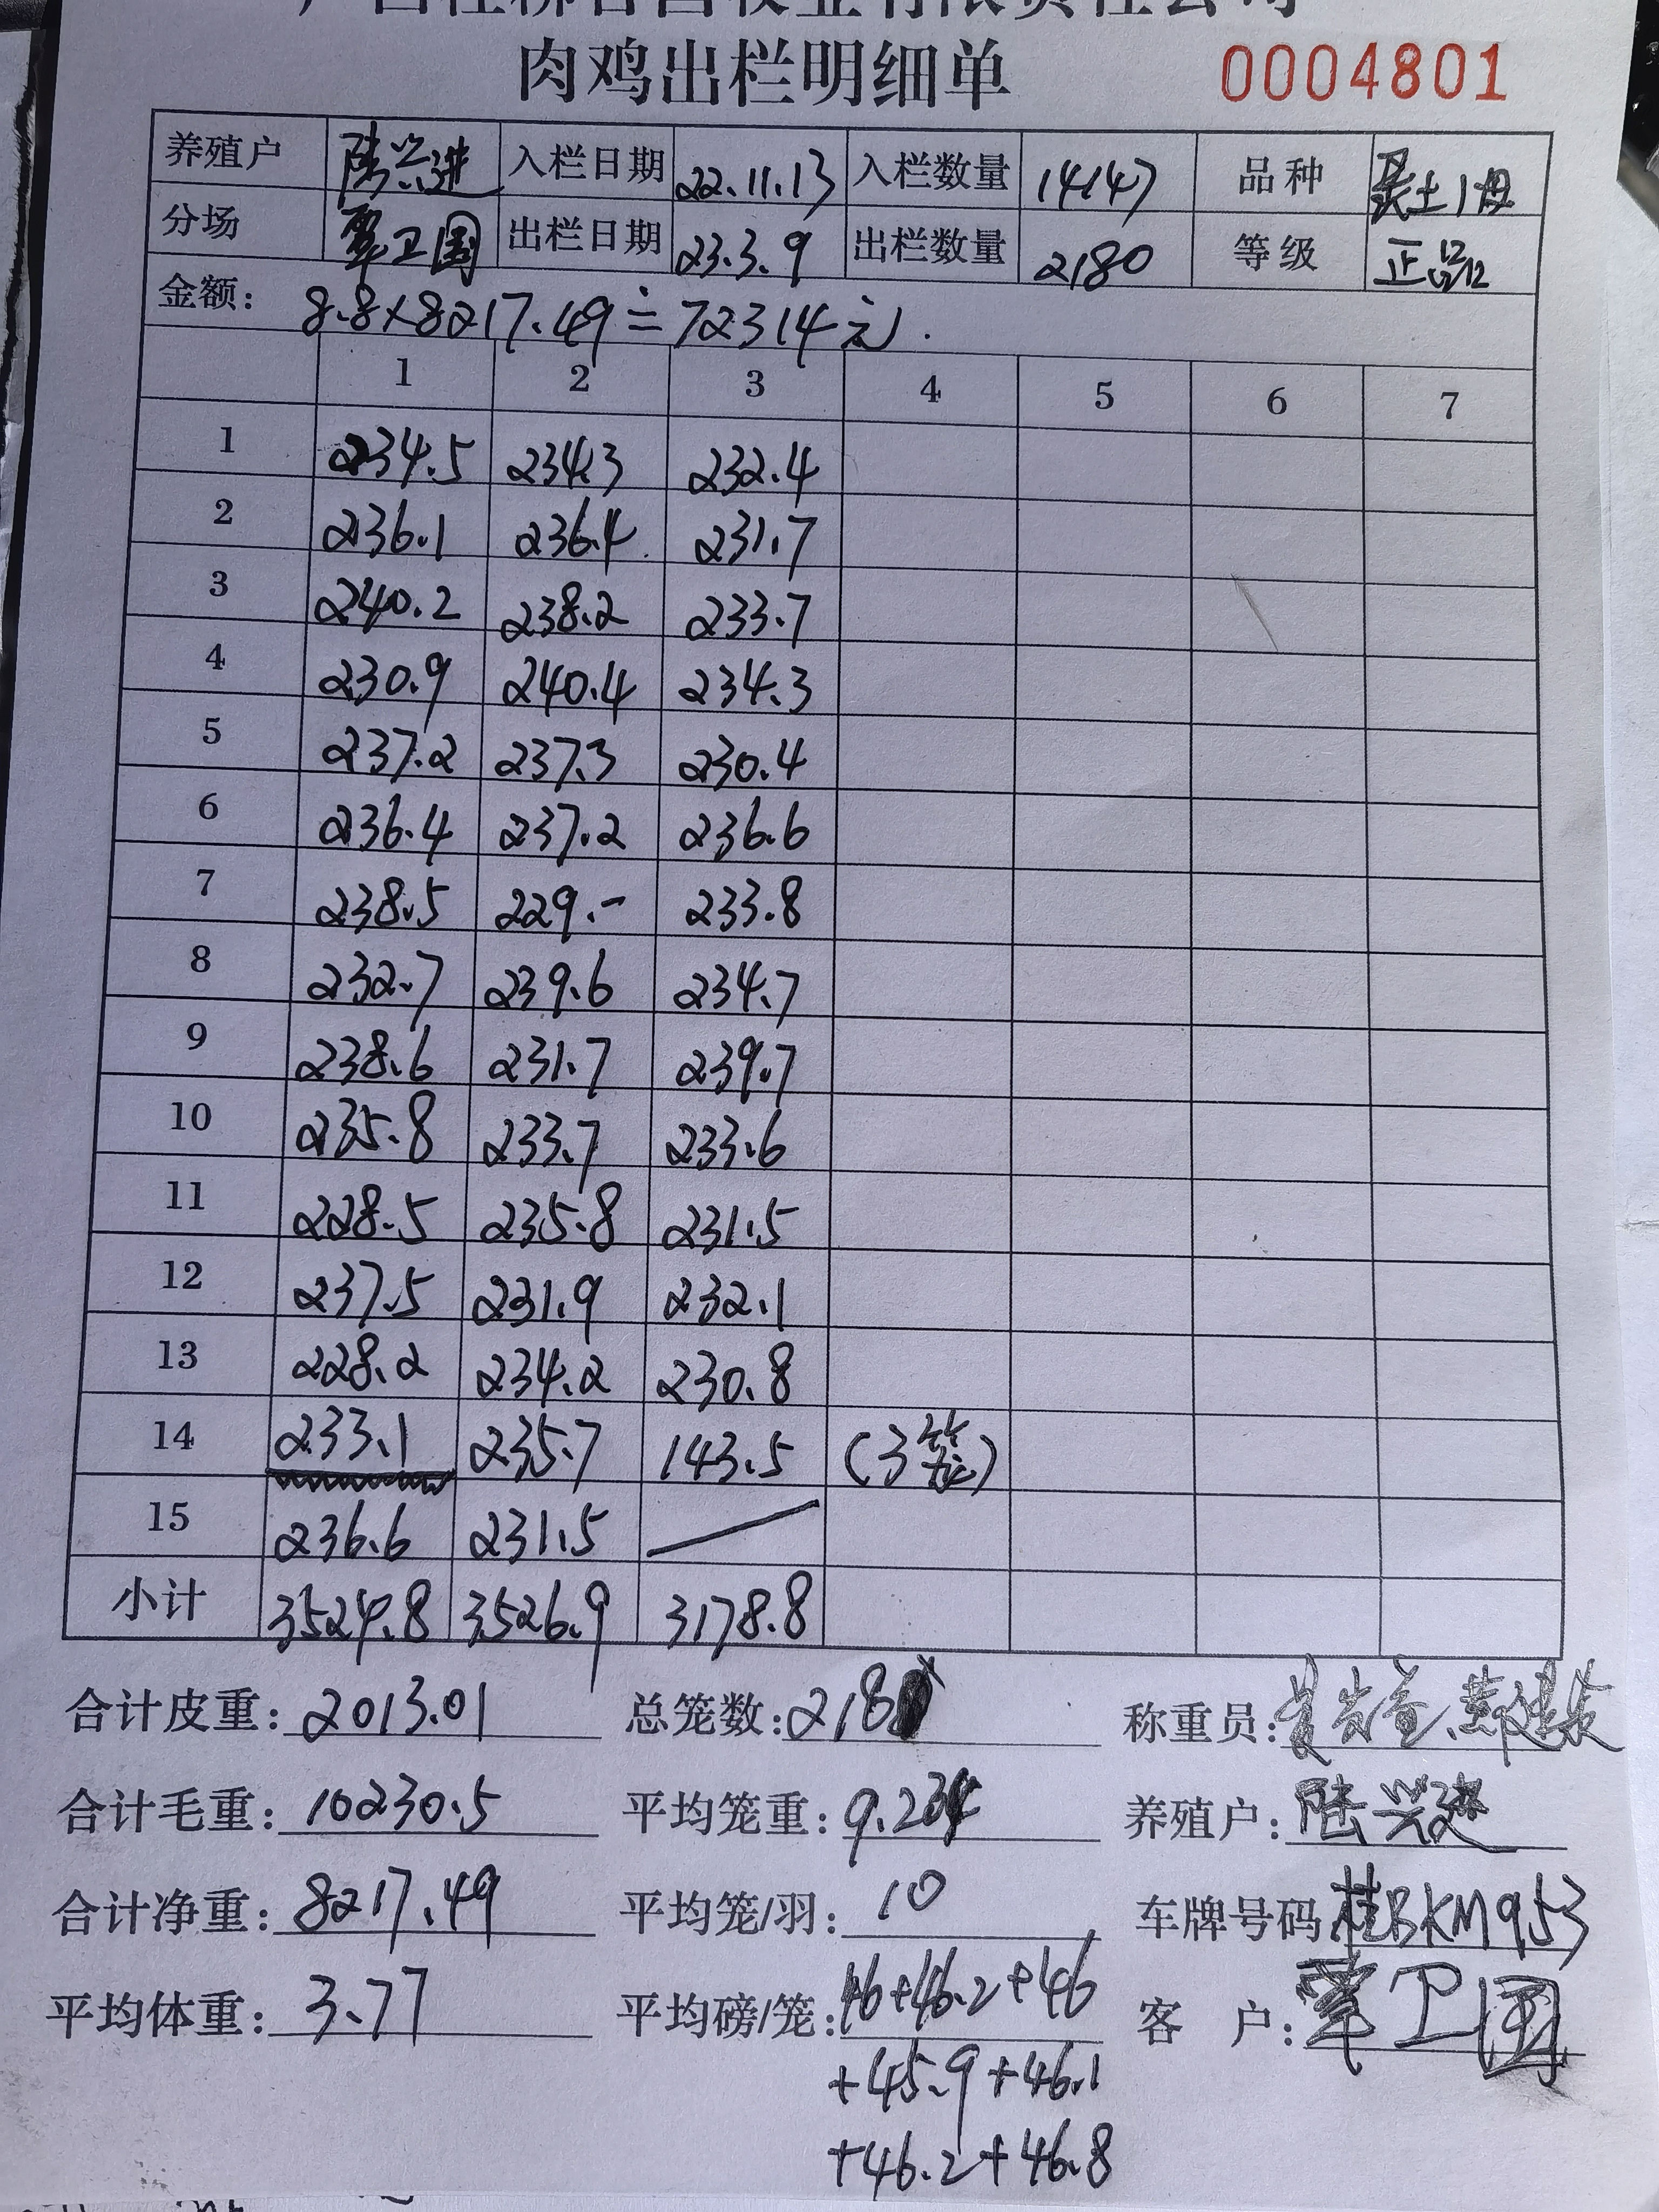 肉鸡出栏明细单 0004801
养殖户 陆兴进 入栏日期 22.11.13 入栏数量 14147 品种 土1母
分场 覃卫国 出栏日期 23.3.9 出栏数量 2180 等级 正品
金额: 8.8×8217.49≐72314元.
1 2 3 4 5 6 7
1 234.5 234.3 232.4
2 236.1 236.4 231.7
3 240.2 238.2 233.7
4 230.9 240.4 234.3
5 237.2 237.3 230.4
6 236.4 237.2 236.6
7 238.5 229.- 233.8
8 232.7 239.6 234.7
9 238.6 231.7 239.7
10 235.8 233.7 233.6
11 228.5 235.8 231.5
12 237.5 231.9 232.1
13 228.2 234.2 230.8
14 233.1 235.7 143.5 (3笼)
15 236.6 231.5
小计 3524.8 3526.9 3178.8
合计皮重: 2013.01 总笼数: 218 称重员:
合计毛重: 10230.5 平均笼重: 9.234 养殖户: 陆兴进
合计净重: 8217.49 平均笼/羽: 10 车牌号码 桂BKM953
平均体重: 3.77 平均磅/笼: 46+46.2+46 客 户: 覃卫国
+45.9+46.1
+46.2+46.8